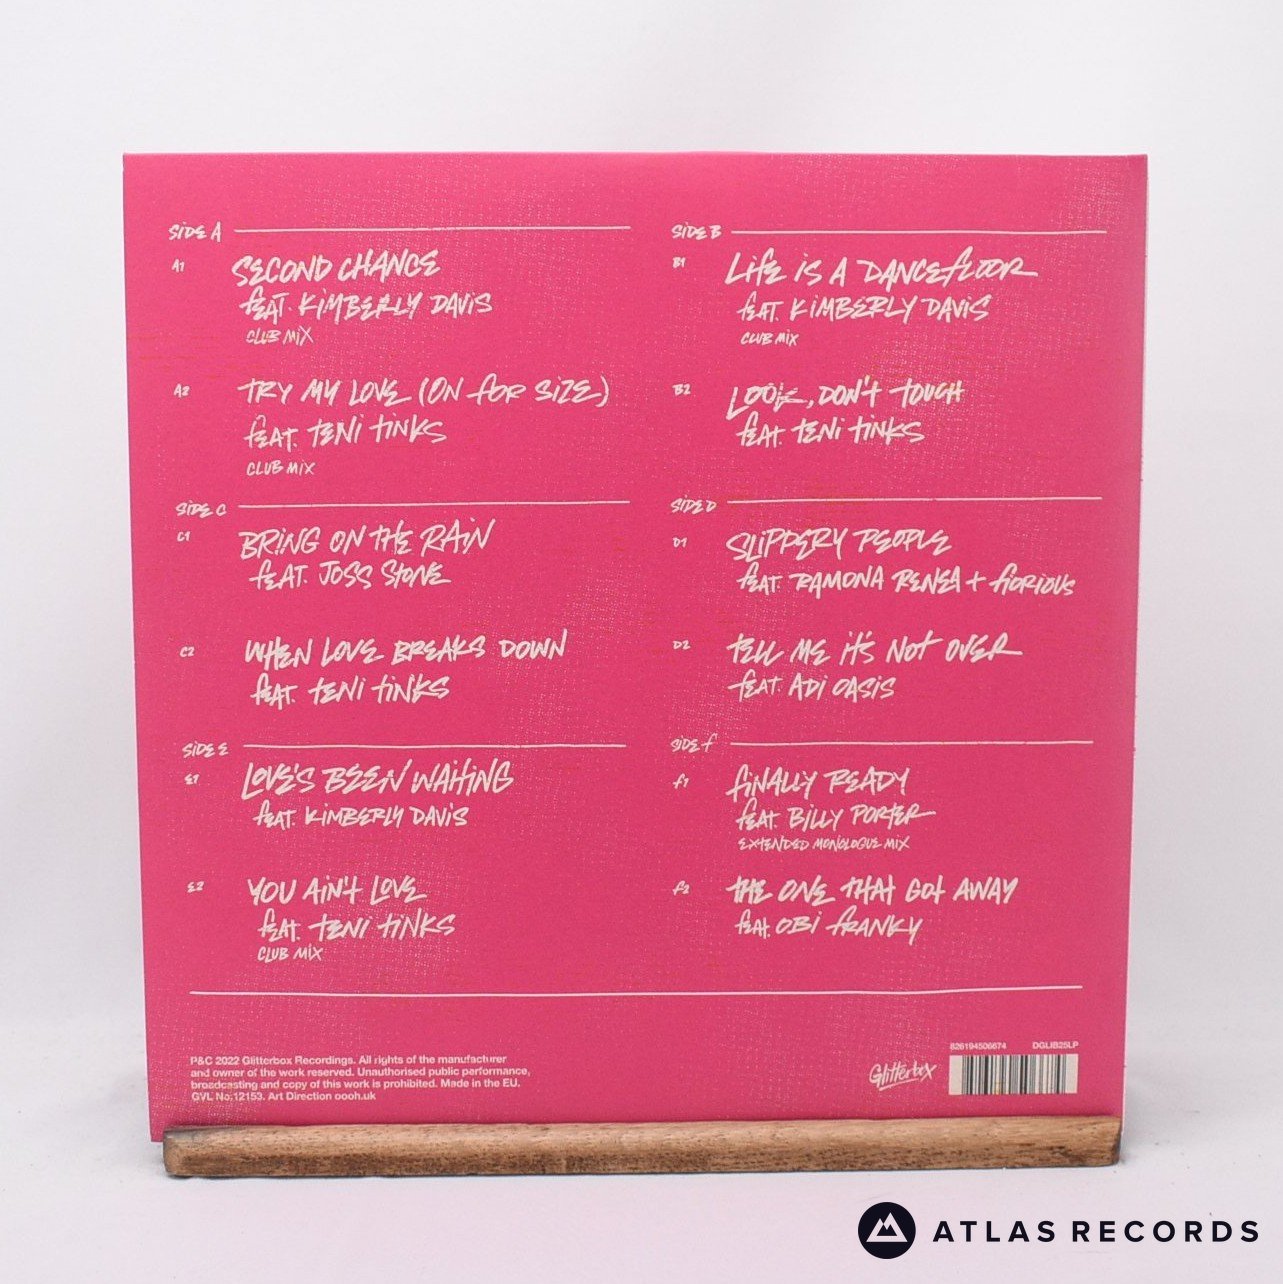 SIDE A
A1
SECOND CHANCE
FEAT. KIMBERLY DAVIS
CLUB MIX
A2
TRY MY LOVE (ON FOR SIZE)
FEAT. TENI TINKS
CLUB MIX
SIDE B
B1
LIFE IS A DANCEFLOOR
FEAT. KIMBERLY DAVIS
CLUB MIX
B2
LOOK, DON'T TOUCH
FEAT. TENI TINKS
SIDE C
C1
BRING ON THE RAIN
FEAT. JOSS STONE
C2
WHEN LOVE BREAKS DOWN
FEAT. TENI TINKS
SIDE D
D1
SLIPPERY PEOPLE
FEAT. RAMONA RENEA + FIORIOUS
D2
TELL ME IT'S NOT OVER
FEAT. ADI OASIS
SIDE E
E1
LOVE'S BEEN WAITING
FEAT. KIMBERLY DAVIS
E2
YOU AIN'T LOVE
FEAT. TENI TINKS
CLUB MIX
SIDE F
F1
FINALLY READY
FEAT. BILLY PORTER
EXTENDED MONOLOGUE MIX
F2
THE ONE THAT GOT AWAY
FEAT. OBI FRANKY
P&C 2022 Glitterbox Recordings. All rights of the manufacturer
and owner of the work reserved. Unauthorised public performance,
broadcasting and copy of this work is prohibited. Made in the EU.
GVL No.12153. Art Direction oooh.uk
Glitterbox
826194506674 DGLIB25LP
ATLAS RECORDS